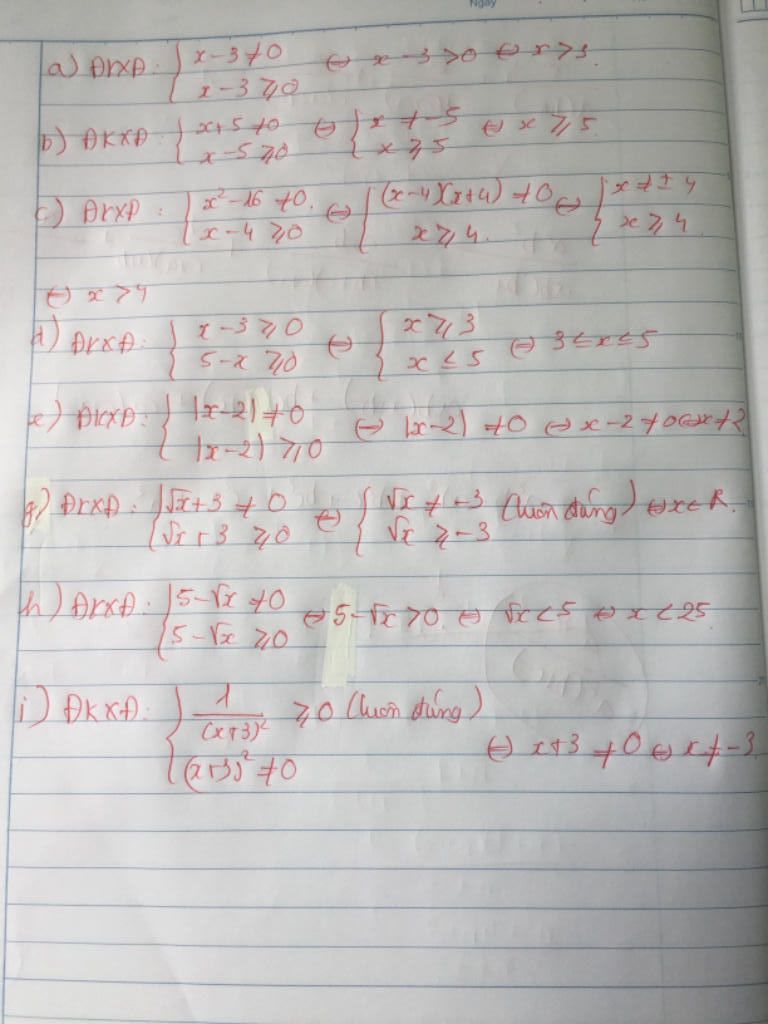 Ngày
a) ĐKXĐ: { x-3 ≠ 0 ; x-3 ⩾ 0 ⇔ x-3 > 0 ⇔ x > 3.
b) ĐKXĐ: { x+5 ≠ 0 ; x-5 ⩾ 0 ⇔ { x ≠ -5 ; x ⩾ 5 ⇔ x ⩾ 5.
c) ĐKXĐ: { x²-16 ≠ 0. ; x-4 ⩾ 0 ⇔ { (x-4)(x+4) ≠ 0 ; x ⩾ 4. ⇔ { x ≠ ± 4 ; x ⩾ 4
⇔ x > 4
d) ĐKXĐ: { x-3 ⩾ 0 ; 5-x ⩾ 0 ⇔ { x ⩾ 3 ; x ≤ 5 ⇔ 3 ≤ x ≤ 5
e) ĐKXĐ: { |x-2| ≠ 0 ; |x-2| ⩾ 0 ⇔ |x-2| ≠ 0 ⇔ x-2 ≠ 0 ⇔ x ≠ 2
g) ĐKXĐ: { √x+3 ≠ 0 ; √x+3 ⩾ 0 ⇔ { √x ≠ -3 ; √x ⩾ -3 (luôn đúng) ⇔ x ∈ R.
h) ĐKXĐ: { 5-√x ≠ 0 ; 5-√x ⩾ 0 ⇔ 5-√x > 0 ⇔ √x < 5 ⇔ x < 25
i) ĐKXĐ: { 1/(x+3)² ⩾ 0 (luôn đúng) ; (x+3)² ≠ 0 ⇔ x+3 ≠ 0 ⇔ x ≠ -3